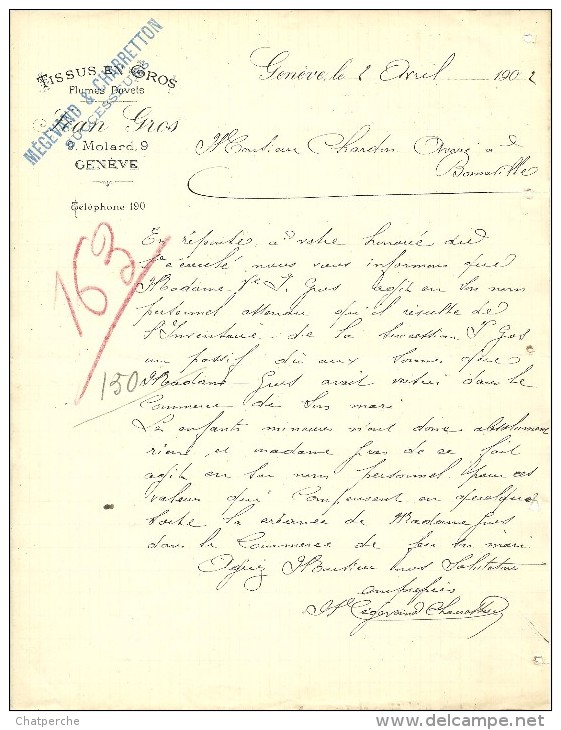 TISSUS EN GROS
Plumes Duvets
Jean Gros
9, Molard, 9
GENÈVE
Téléphone 190
MÉGEVAND & CHABRETTON
SUCCESSEURS
Genève, le 2 Avril 1902
Monsieur Chardon Avoué à
Bonneville
163
150
En réponse à votre honorée du
nous vous informons que
Madame Vve J. Gros agit en son nom
personnel attendu qu'il résulte de
l'Inventaire de la succession J. Gros
un passif dû aux sommes que
Madame Gros avait dans le
Commerce de son mari
Les enfants mineurs n'ont donc absolument
rien, et madame Gros de ce fait
agit en son nom personnel pour ces
valeurs qui compensent en quelque
sorte la créance de Madame Gros
dans le Commerce de feu son mari
Agréez Monsieur nos Salutations
empressées
Mégevand Chabretton
Chatperche
www.delcampe.net